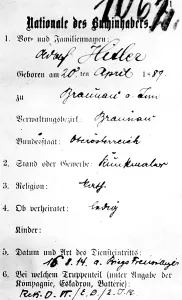 Nationale des Buchinhabers.
1. Vor- und Familiennamen:
Adolf Hitler
Geboren am 20ten April 1889.
zu Braunau a. Inn
Verwaltungsbezirk: Braunau
Bundesstaat: Oberösterreich
2. Stand oder Gewerbe: Kunstmaler
3. Religion: kath.
4. Ob verheiratet: ledig
Kinder:
5. Datum und Art des Diensteintritts:
16. 8. 14. a.
6. Bei welchem Truppenteil (unter Angabe der
Kompagnie, Eskadron, Batterie):